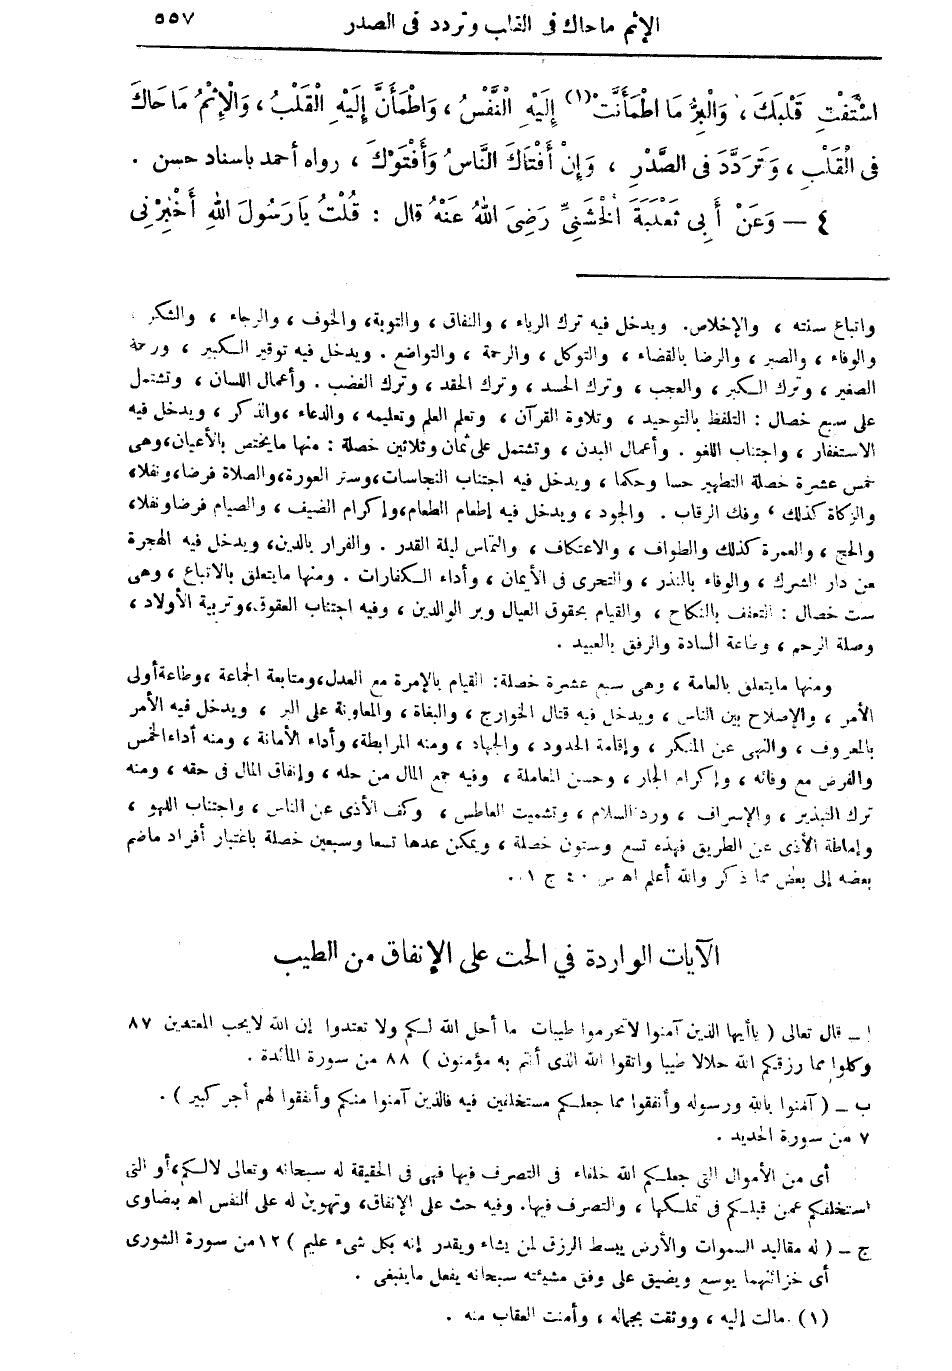 الإثم ما حاك فى القلب وتردد فى الصدر ٥٥٧
اسْتَفْتِ قَلْبَكَ ، وَالْبِرُّ مَا اطْمَأَنَّتْ (١) إِلَيْهِ النَّفْسُ ، وَاطْمَأَنَّ إِلَيْهِ الْقَلْبُ ، وَالْإِثْمُ مَا حَاكَ
فى الْقَلْبِ ، وَتَرَدَّدَ فى الصَّدْرِ ، وَإِنْ أَفْتَاكَ النَّاسُ وَأَفْتَوْكَ ، رواه أحمد بإسناد حسن .
٤ — وَعَنْ أَبِى ثَعْلَبَةَ الْخُشَنِىِّ رَضِىَ اللهُ عَنْهُ قال : قُلْتُ يَا رَسُولَ اللهِ أَخْبِرْنِى
واتباع سنته ، والإخلاص. ويدخل فيه ترك الرياء ، والنفاق ، والتوبة، والخوف ، والرجاء ، والشكر ،
والوفاء ، والصبر ، والرضا بالقضاء ، والتوكل ، والرحمة ، والتواضع . ويدخل فيه توقير الكبير ، ورحمة
الصغير ، وترك الكبر ، والعجب ، وترك الحسد ، وترك الحقد ، وترك الغضب . وأعمال اللسان ، وتشتمل
على سبع خصال : التلفظ بالتوحيد ، وتلاوة القرآن ، وتعلم العلم وتعليمه ، والدعاء ، والذكر ، ويدخل فيه
الاستغفار ، واجتناب اللغو . وأعمال البدن ، وتشتمل على ثمان وثلاثين خصلة : منها ما يختص بالأعيان، وهى
خمس عشرة خصلة التطهير حسا وحكما ، ويدخل فيه اجتناب النجاسات، وستر العورة، والصلاة فرضا، ونفلا،
والزكاة كذلك ، وفك الرقاب . والجود ، ويدخل فيه إطعام الطعام، وإكرام الضيف ، والصيام فرضا ونفلا،
والحج ، والعمرة كذلك والطواف ، والاعتكاف ، والتماس ليلة القدر . والفرار بالدين، ويدخل فيه الهجرة
من دار الشرك ، والوفاء بالنذر ، والتحرى فى الأيمان ، وأداء الكفارات . ومنها ما يتعلق بالاتباع ، وهى
ست خصال : التعفف بالنكاح ، والقيام بحقوق العيال وبر الوالدين ، وفيه اجتناب العقوق، وتربية الأولاد ،
وصلة الرحم ، وطاعة السادة والرفق بالعبيد .
ومنها ما يتعلق بالعامة ، وهى سبع عشرة خصلة: القيام بالإمرة مع العدل، ومتابعة الجماعة ، وطاعة أولى
الأمر ، والإصلاح بين الناس ، ويدخل فيه قتال الخوارج ، والبغاة ، والمعاونة على البر ، ويدخل فيه الأمر
بالمعروف ، والنهى عن المنكر ، وإقامة الحدود ، والجهاد ، ومنه المرابطة، وأداء الأمانة ، ومنه أداء الخمس
والقرض مع وفائه ، وإكرام الجار ، وحسن المعاملة ، وفيه جمع المال من حله ، وإنفاق المال فى حقه ، ومنه
ترك التبذير ، والإسراف ، ورد السلام ، وتشميت العاطس ، وكف الأذى عن الناس ، واجتناب اللهو ،
وإماطة الأذى عن الطريق فهذه تسع وستون خصلة ، ويمكن عدها تسعا وسبعين خصلة باعتبار أفراد ما ضم
بعضه إلى بعض مما ذكر والله أعلم اه ص ٤٠ ج ١ .
الآيات الواردة في الحث على الإنفاق من الطيب
ا — قال تعالى ( يا أيها الذين آمنوا لا تحرموا طيبات ما أحل الله لكم ولا تعتدوا إن الله لا يحب المعتدين ٨٧
وكلوا مما رزقكم الله حلالا طيبا واتقوا الله الذى أنتم به مؤمنون ) ٨٨ من سورة المائدة .
ب — ( آمنوا بالله ورسوله وأنفقوا مما جعلكم مستخلفين فيه فالذين آمنوا منكم وأنفقوا لهم أجر كبير ) .
٧ من سورة الحديد .
أى من الأموال التى جعلكم الله خلفاء فى التصرف فيها فهى فى الحقيقة له سبحانه وتعالى لا لكم، أو التى
استخلفكم عمن قبلكم فى تملكها ، والتصرف فيها. وفيه حث على الإنفاق، وتهوين له على النفس اه بيضاوى
ج — ( له مقاليد السموات والأرض يبسط الرزق لمن يشاء ويقدر إنه بكل شىء عليم ) ١٢ من سورة الشورى
أى خزائنهما يوسع ويضيق على وفق مشيئته سبحانه يفعل ما ينبغى .
(١) مالت إليه ، ووثقت بجماله ، وأمنت العقاب منه .